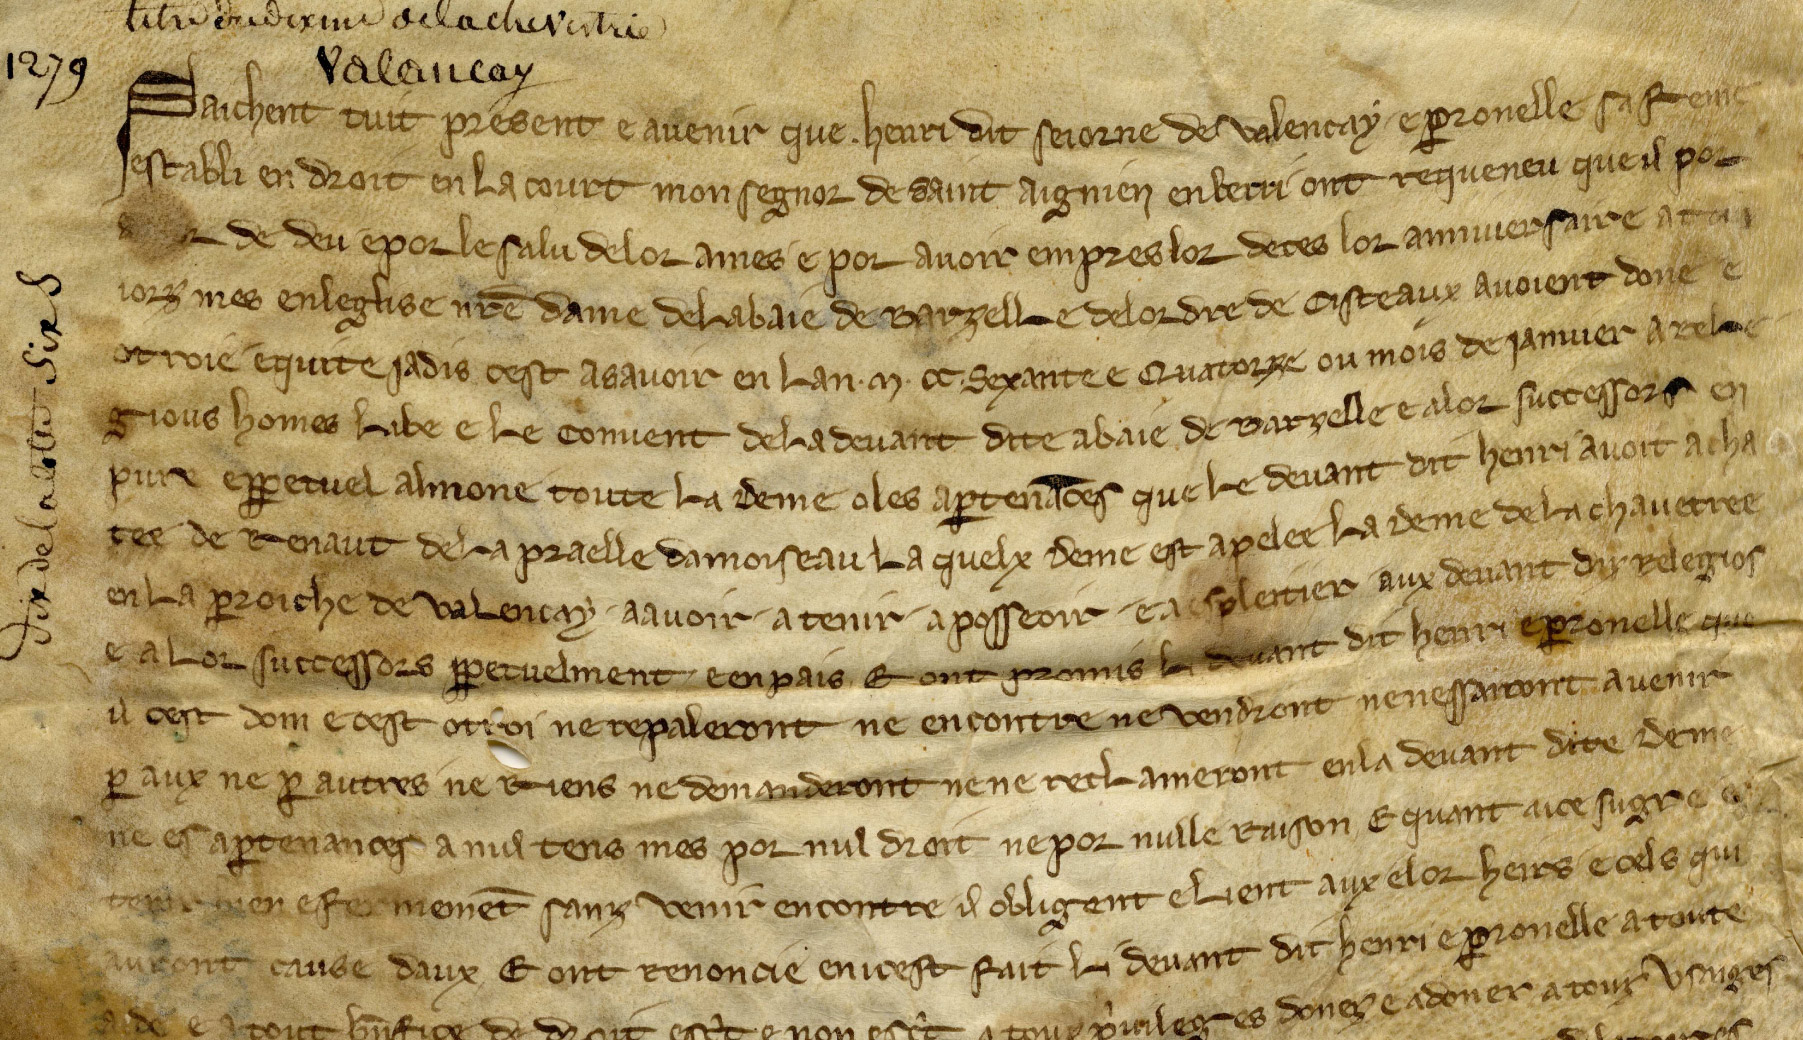 titre du dixme de la chevetrie
1279
Valencay
Saichent tuit present e avenir que henri dit seiorne de valencay e pronelle sa feme
establi en droit en la court monsegnor de saint aignien en berri ont requeneu que il por
de deu e por le salu de lor ames e por avoir empres lor deces lor anniversaire a
iorz mes en leglise nre dame de labaie de Barzelle de lordre de Cisteaux avoient done e
otroie e quite jadis cest asavoir en lan .m. cc. sexante e Quatorze ou mois de janvier a rele
gious homes labe e le convent de la devant dite abaie de Barzelle e a lor successors en
pure e ppetuel almone toute la deme o les aptenaces que le devant dit henri avoit acha
tee de Renaut de la praelle damoiseau la quelx deme est apelee la deme de la chavetree
en la proiche de valencay a avoir a tenir a posseoir e a espleitier aux devant diz relegios
e a lor successors ppetuelment e en pais E ont promis li devant dit henri e pronelle que
il cest don e cest otroi ne repaleront ne encontre ne vendront ne nessairont a venir
p aux ne p autres ne Riens ne demanderont ne ne reclameront en la devant dite deme
ne es aptenances a nul tens mes por nul droit ne por nulle raison E quant a ice sugre e
tenir bien e fermement sanz venir encontre il obligent e lient aux e lor heirs e cels qui
auront cause daux E ont renoncie en icest fait li devant dit henri e pronelle a toute
aide e a tout bnfice de droit escrit e non escrit a toux privileges donez e a doner a touz usaiges
Six de la lettre Six S